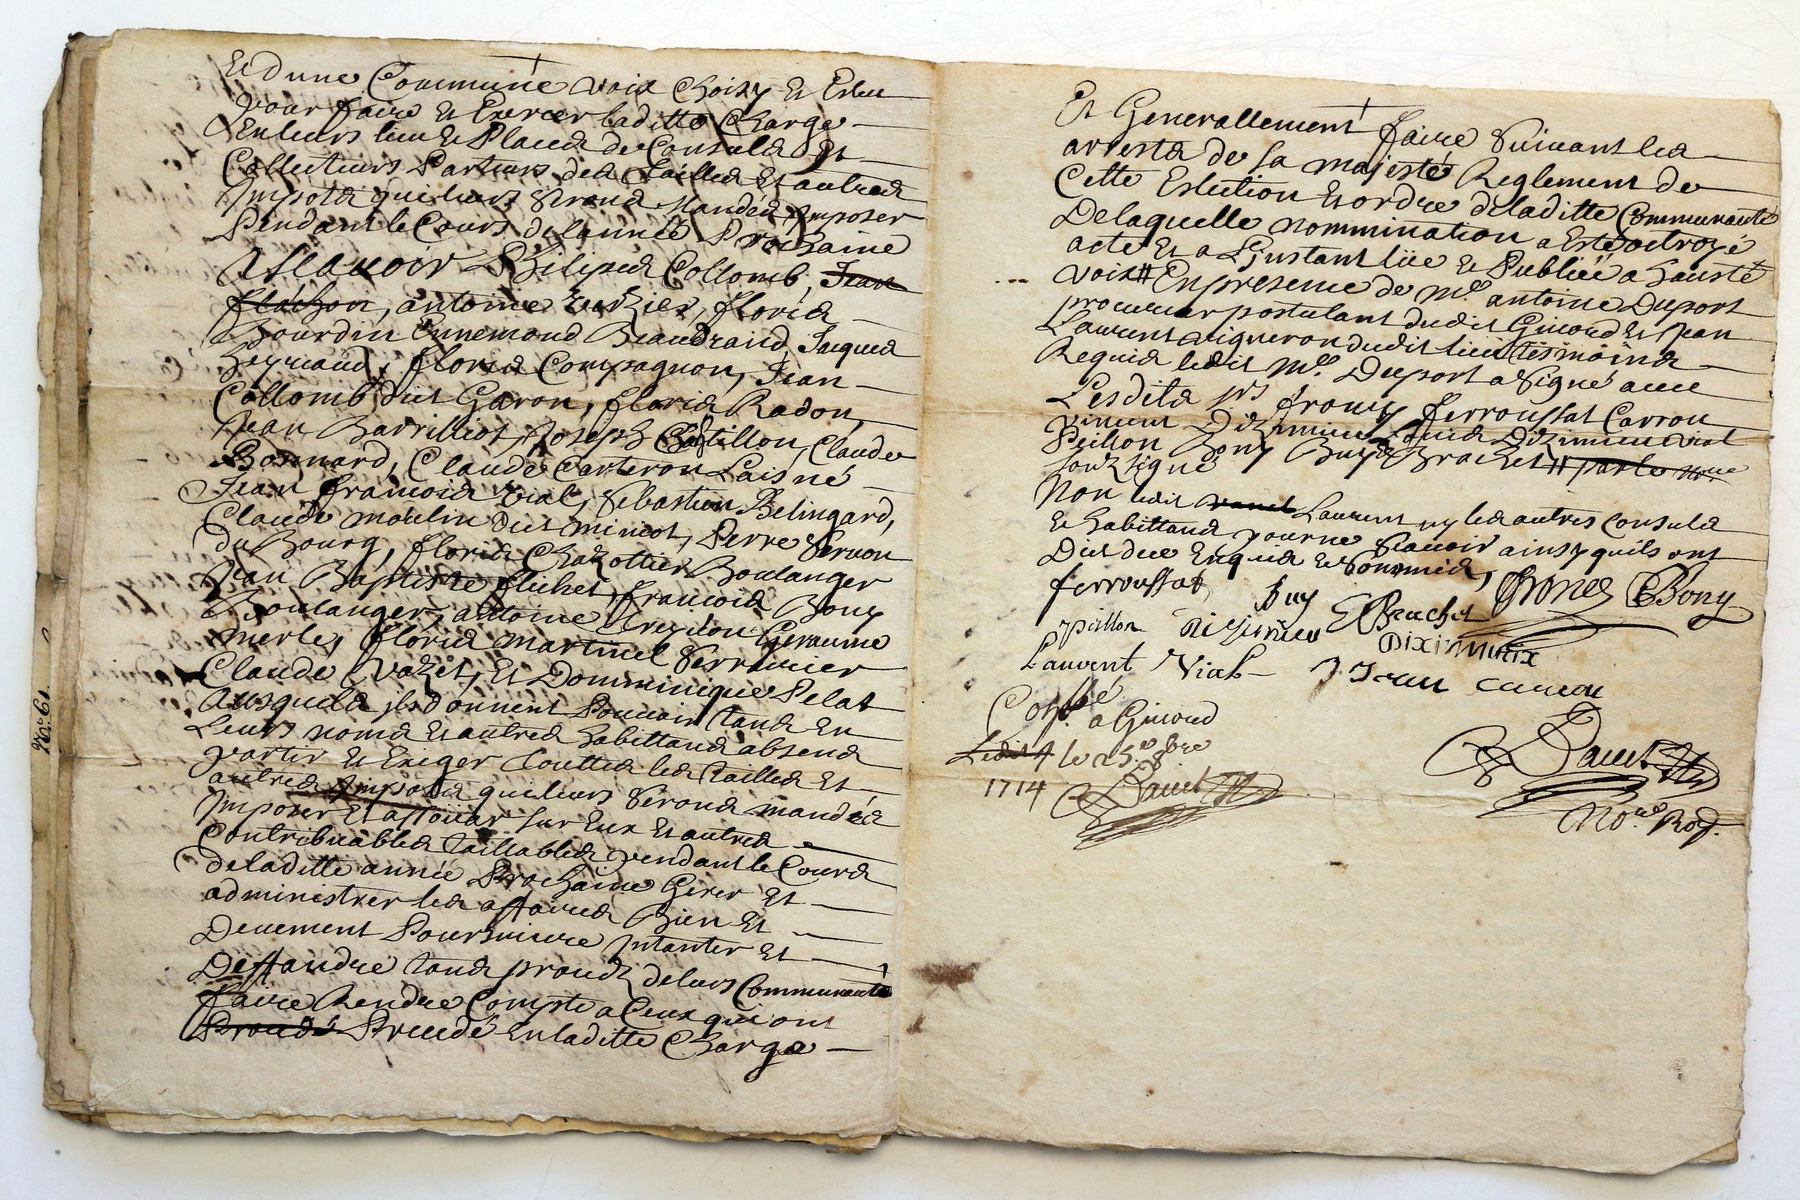 Et dune Commune voix Choisy Et Esleu
pour faire Et Exercer laditte Charge
Enleurs lieu Et Place de Consuls Et
Collecteurs Parteurs des Tailles Et autres
Impots qui leurs Seront Mandés Imposer
Pendant le Cours de lannée Prochaine
Ascavoir Philipes Collomb, Jean
flachon, antoine Verzier, floris
Bourdin Ennemond Beaudrand, Jaques
Reynaud, floris Compagnon, Jean
Collomb dict Garon, floris Radon,
Jean Barrillot, Joseph Chatillon, Claude
Bonnard, Claude Carteron Laisné
Jean francois Vial, Sebastien Belingard,
Claude moulin dict mincot, Pierre Vernon
du Bourg, floris Chazottier Boulanger
Jean Baptiste flichet, francois Bony
Boulanger, antoine Geraume
merle, floris martinel Serrurier
Claude Vazet, Et Domminique Pelat
Ausquels ils donnent Pouvoir tans En
Leurs noms Et autres habittans absens
partir Et Exiger touttes les tailles Et
autres Impots qui leurs Seront mandés
Imposer Et assoiiar sur Eux Et autres
Contribuables taillables pendant le Cours
de laditte année Prochaine Gerer Et
administrer les affaires Bien Et
Deuement Poursuivre Intanter Et
Deffandre tous procès de leurs Communauté
faire Rendre Compte a Ceux qui ont
Precedé En laditte Charge
Et Generallement faire Suivant les
arrests de sa majesté Reglement de
Cette Eslection Et ordre de laditte Communauté
De laquelle nommination a Esté octroyé
acte Et a Linstant liie Et Publiée a haute
voix # En presence de Me antoine Duport
procureur postulant dudit Givord Et Jean
Laurent vigneron dudit lieu tesmoins
Requis ledit Me Duport a Signé avec
Lesdits srs frony ferroussat Carron
vincent Diziminieu Louis Diziminieu vial
Peillon Bony Buy Brachet # par le nore
souzsigné
Non ledit Laurent ny les autres Consuls
Et habittans pour ne Scavoir ainsy quils ont
Dict due Enquis Et Sommés,
ferroussat Buy Brachet frones Bony
peillon Diziminieu Diximinix
Laurent Vial J Jean carron
Conllé
a Givord
Ledit 4 le 25e 8bre
1714 Dauet
Dauet
Nore Roy.
No. 61